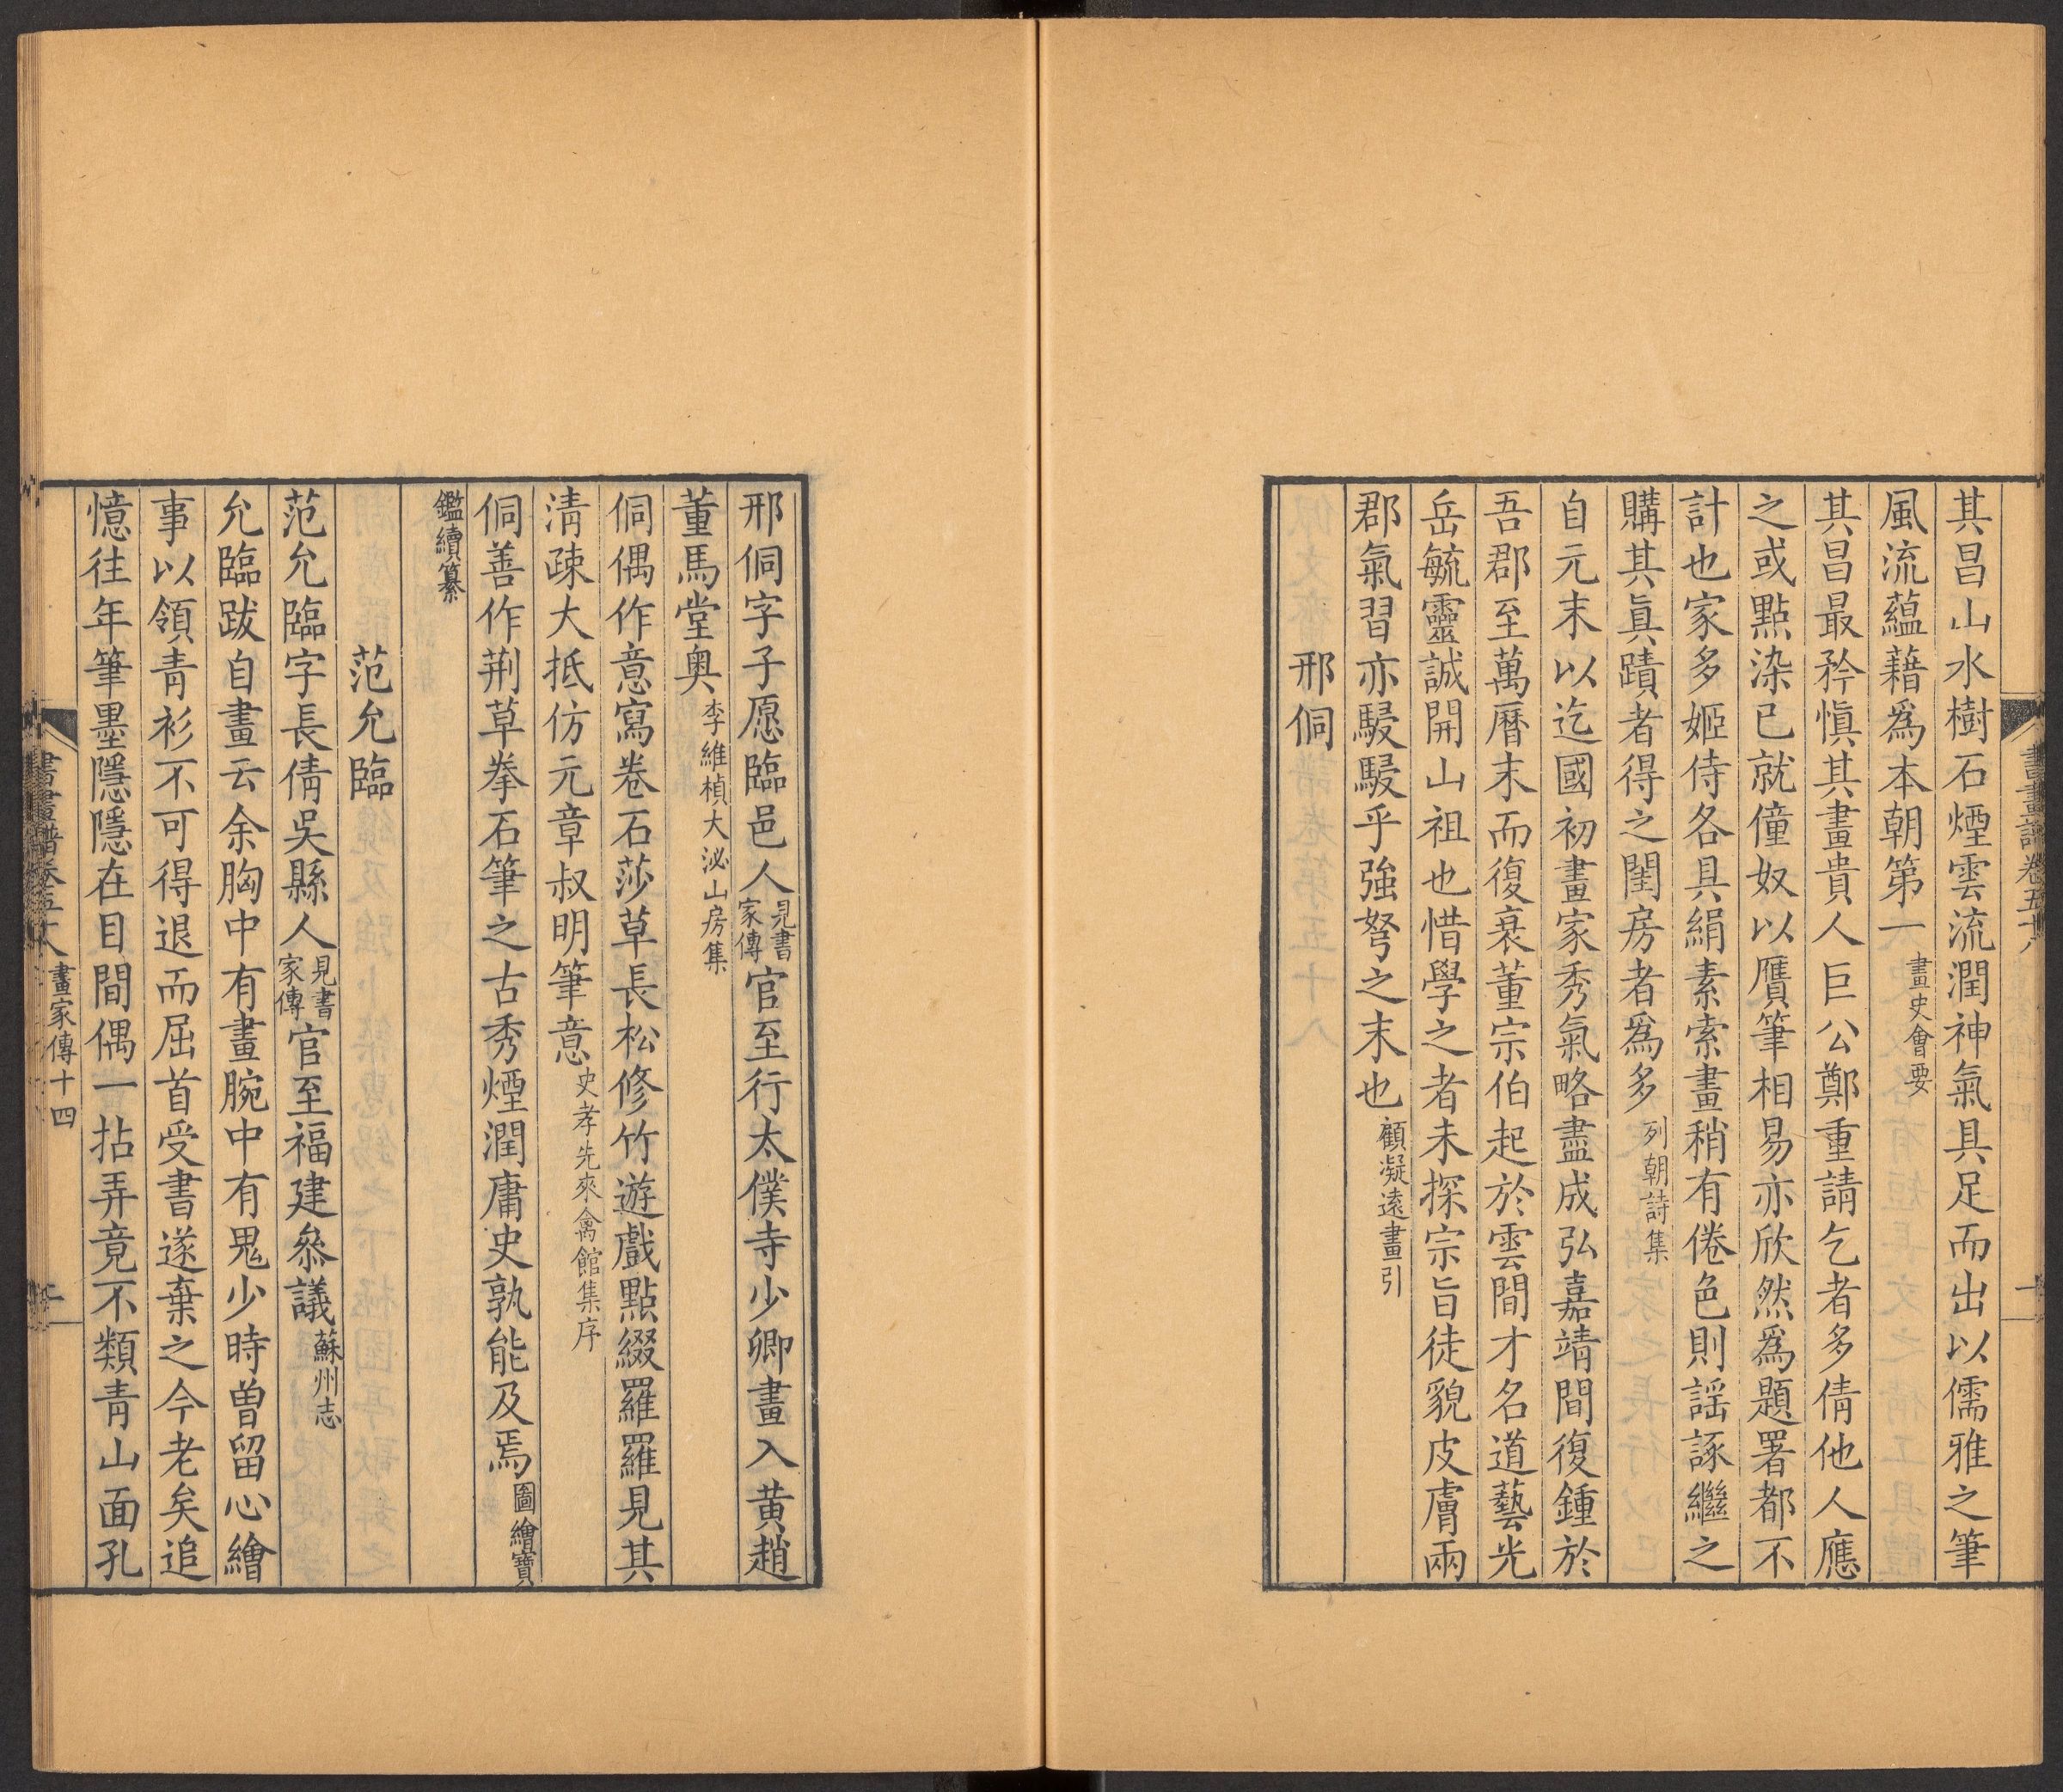 其昌山水樹石煙雲流潤神氣具足而出以儒雅之筆
風流蘊藉爲本朝第一畫史會要
其昌最矜愼其畫貴人巨公鄭重請乞者多倩他人應
之或點染已就僮奴以贋筆相易亦欣然爲題署都不
計也家多姬侍各具絹素索畫稍有倦色則謡諑繼之
購其眞蹟者得之閨房者爲多列朝詩集
自元末以迄國初畫家秀氣略盡成弘嘉靖間復鍾於
吾郡至萬曆末而復衰董宗伯起於雲間才名道藝光
岳毓靈誠開山祖也惜學之者未探宗旨徒貌皮膚兩
郡氣習亦駸駸乎強弩之末也顧凝遠畫引
邢侗
書畫譜卷五十八
一
邢侗字子愿臨邑人見書家傳官至行太僕寺少卿畫入黄趙
董馬堂奥李維楨大泌山房集
侗偶作意寫卷石莎草長松修竹遊戲點綴羅羅見其
淸疎大抵仿元章叔明筆意史孝先來禽館集序
侗善作荆草拳石筆之古秀煙潤庸史孰能及焉圖繪寶
鑑續纂
范允臨
范允臨字長倩吳縣人見書家傳官至福建叅議蘇州志
允臨跋自畫云余胸中有畫腕中有鬼少時曾留心繪
事以領靑衫不可得退而屈首受書遂棄之今老矣追
憶往年筆墨隱隱在目間偶一拈弄竟不類靑山面孔
書畫譜卷五十八 畫家傳十四